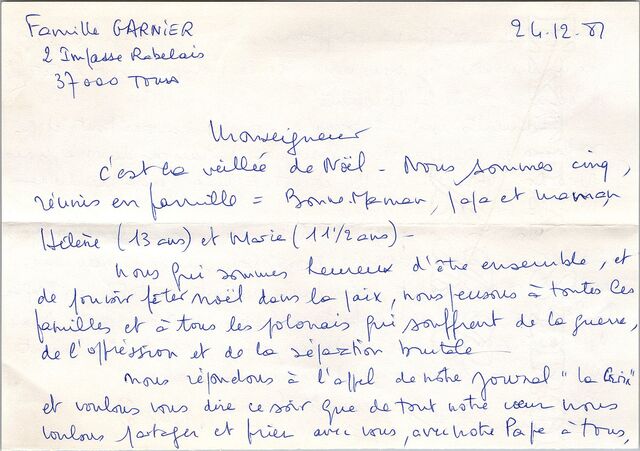 Famille GARNIER
24.12.81
2 Impasse Rabelais
37000 TOURS
Monseigneur
c'est la veillée de Noël - Nous sommes cinq,
réunis en famille = Bonne-Maman, papa et maman
Hélène (13 ans) et Marie (11 1/2 ans) -
Nous qui sommes heureux d'être ensemble, et
de pouvoir fêter noël dans la paix, nous pensons à toutes ces
familles et à tous les polonais qui souffrent de la guerre,
de l'oppression et de la séparation brutale
Nous répondons à l'appel de notre journal "la Croix"
et voulons vous dire ce soir que de tout notre cœur nous
voulons partager et prier avec vous, avec notre Pape à tous,